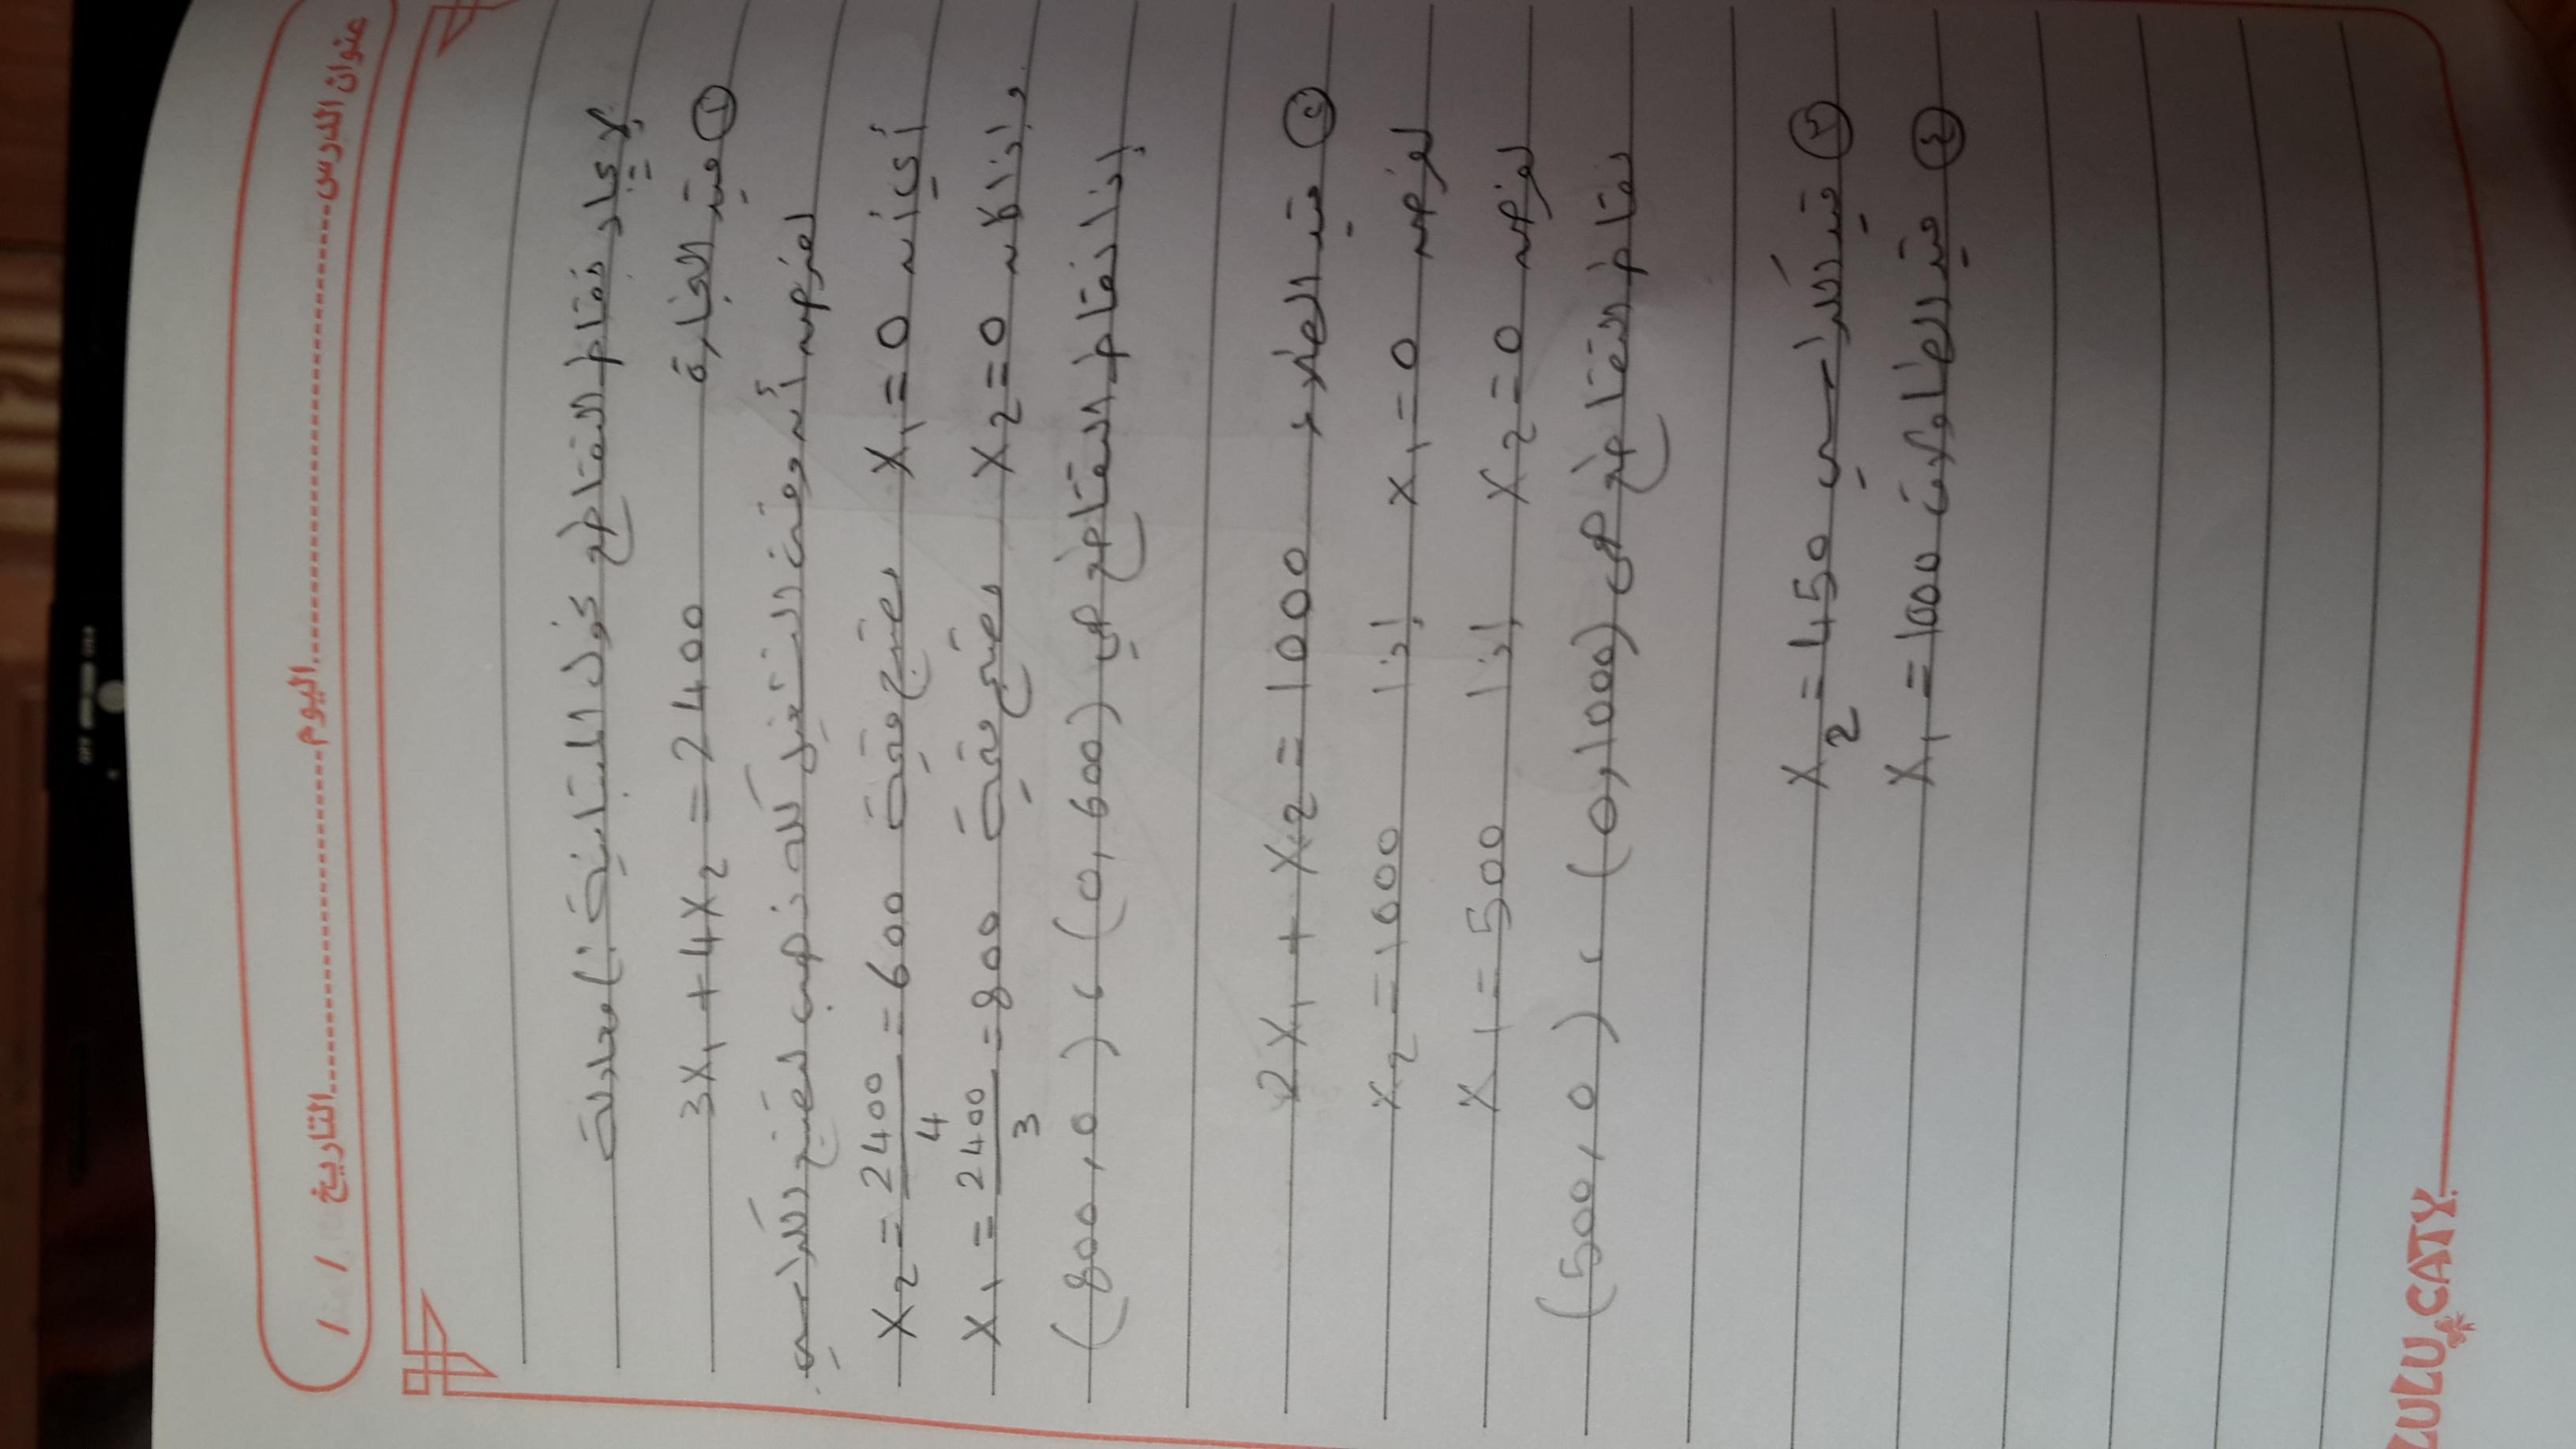 عنوان الدرس ........ اليوم ........ التاريخ / /
لإيجاد نقاط التقاطع نحول المتباينة: معادلة
① قيد النجارة 3X₁ + 4X₂ = 2400
نفرض أن وقت التشغيل كله ذهب لصنع الكراسي
أي أن X₁ = 0 نصبح قيمة X₂ = 2400/4 = 600
وإذا كان X₂ = 0 نصبح قيمة X₁ = 2400/3 = 800
إذا نقاط التقاطع هي (0, 600) ، (800, 0)
② قيد 2X₁ + X₂ = 1000
نفرض X₁ = 0 إذا X₂ = 1000
نفرض X₂ = 0 إذا X₁ = 500
نقاط التقاطع هي (0, 1000) ، (500, 0)
③ قيد الكراسي X₂ = 450
④ قيد الطاولات X₁ = 1000
LULU CATY